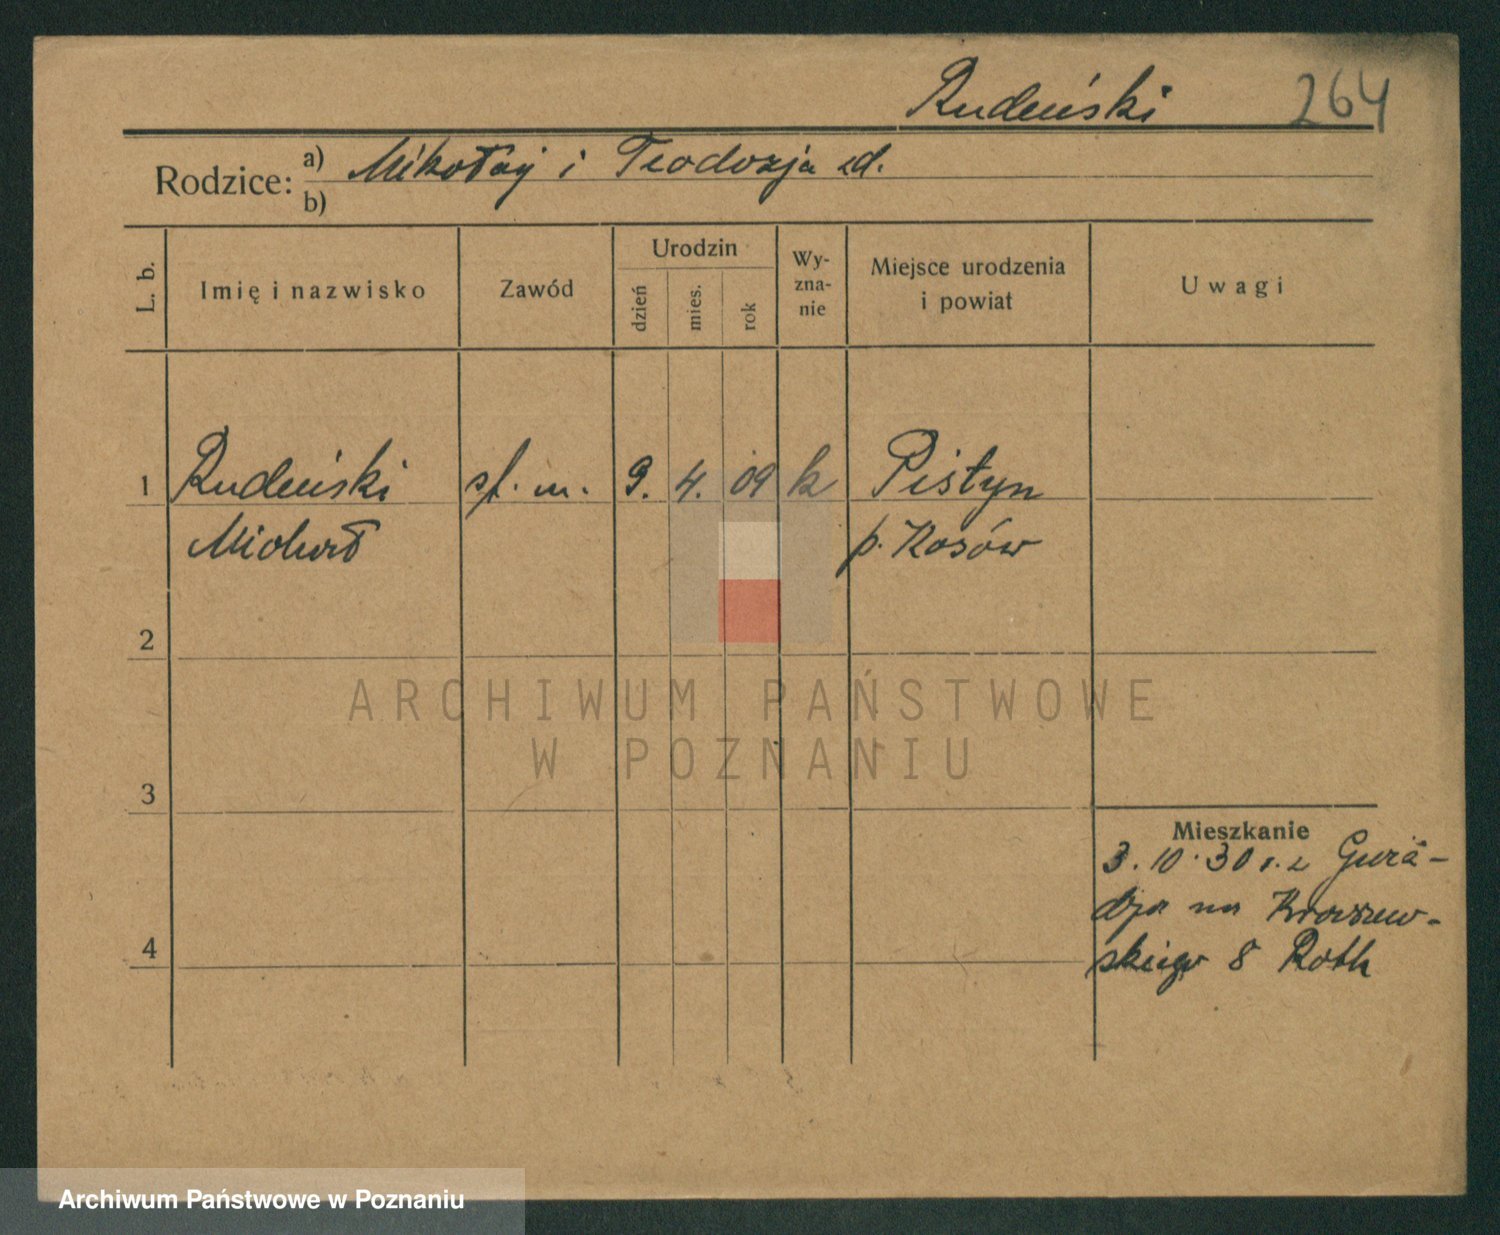 Rudeński 264
Rodzice: a) Mikołaj i Teodozja zd.
b)
L. b.
Imię i nazwisko
Zawód
Urodzin
dzień
mies.
rok
Wy-
zna-
nie
Miejsce urodzenia
i powiat
Uwagi
1 Rudeński sf. m. 9. 4. 09 k Pistyn
Michał p. Kosów
2
3
4
Mieszkanie
3. 10. 30 r. z
na Kraszew-
skiego 8 Roth
ARCHIWUM PAŃSTWOWE
W POZNANIU
Archiwum Państwowe w Poznaniu